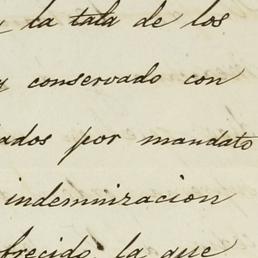 y la tala de los
y conservado con
ados por mandato
indemnizacion
frecido la que